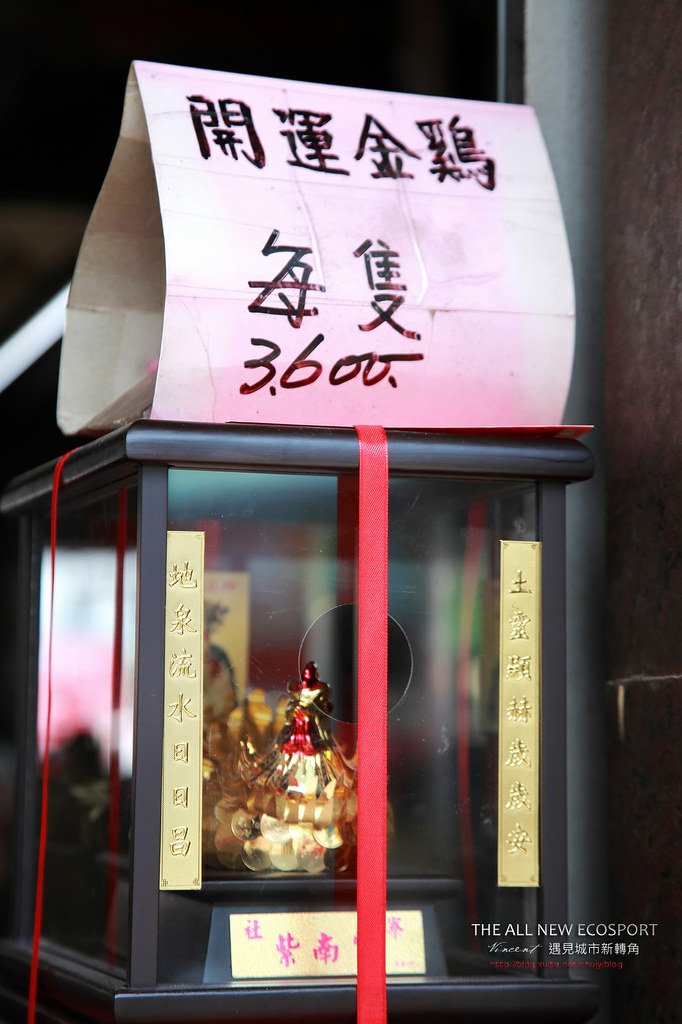 開運金鷄
每隻
3,600.-
土靈顯赫歲歲安
地泉流水日日昌
社
紫南
寮
THE ALL NEW ECOSPORT
Vincent 遇見城市新轉角
http://blog.xuite.net/chujy/blog